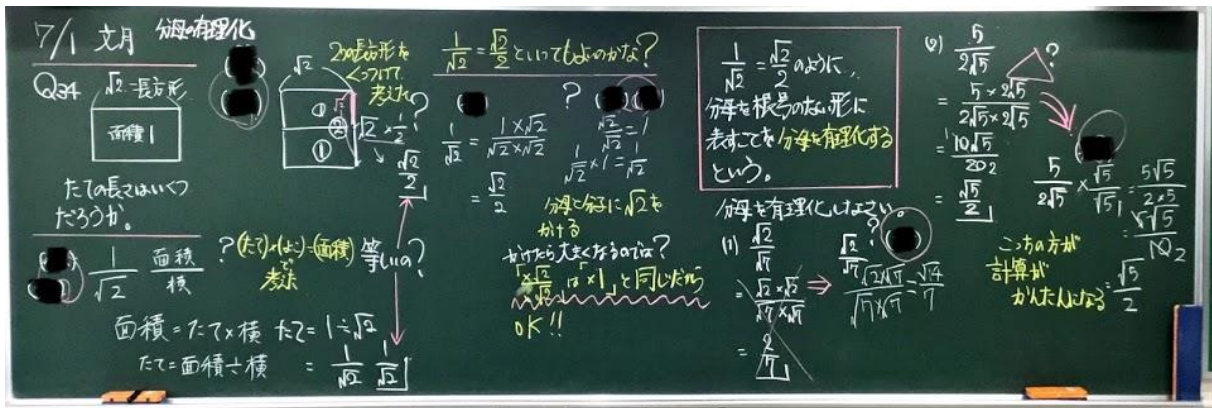 7/1 文月 分母の有理化
Q34 √2 長方形
面積1
たての長さはいくつ
だろうか。
1/√2 面積/横
面積=たて×横 たて=1÷√2
たて=面積÷横 = 1/√2 1/√2
√2
2つの長方形を
くっつけて
考えた
?
① √2
②
①
√2×1/2
√2/2
? (たて)×(よこ)=(面積)
で
考えた
等しいの?
1/√2=√2/2といってもよいのかな?
1/√2 = 1×√2/√2×√2
= √2/2
?
√2/√2=1
1/√2×1=1/√2
分母と分子に√2を
かける
かけたら大きくなるのでは?
「×√2/√2」は「×1」と同じだから
OK!!
1/√2=√2/2のように、
分母を根号のない形に
表すことを分母を有理化する
という。
分母を有理化しなさい。
(1) √2/√7
= √2×√2/√7×√7
= 2/7
⇒
√2/√7 ?
√2×√7/√7×√7=√14/7
(2) 5/2√5
?
= 5×2√5/2√5×2√5
= 10√5/20 2
= √5/2
5/2√5×√5/√5=5√5/2×5
1
=5√5/10 2
=√5/2
こっちの方が
計算が
かんたんになる